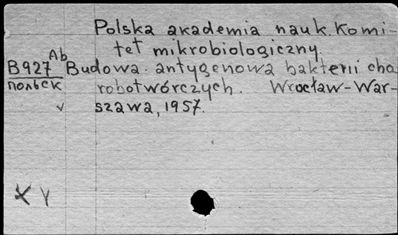 Polska akademia nauk. Komi-
tet mikrobiologiczny.
Ab
B927 Budowa antygenowa bakterii cho
польск robotwórczych. Wrocław-War-
v szawa, 1957.
X Y